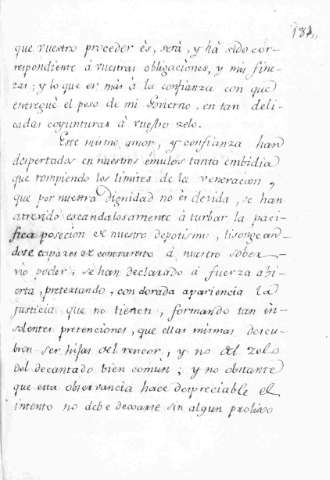 131,
que vuestro proceder és, será, y há sido cor-
respondiente á vuestras obligaciones, y mis fine-
zas; y lo que es más á la confianza con que
entregué el peso de mi Govierno, en tan deli-
cadas coyunturas á vuestro zelo.
Este mismo amor, y confianza han
despertadas en nuestros émulos tanta embidia
que rompiendo los límites de la veneracion,
que por nuestra Dignidad no és devida, se han
atrevido escandalosamente á turbar la paci-
fica posecion de nuestro depotismo, lisongeand-
dose capazes de contrarresto á nuestro sober-
vio poder; se han declarado á fuerza abi-
erta, pretextando, con dorada apariencia la
justicia que no tienen, formando tan in-
solentes pretenciones, que ellas mismas descu-
bren ser hijas del rencor, y no del zelo
del decantado bien comun; y no obstante
que esta observancia hace despreciable el
intento no debe dexarse sin algun prolixo